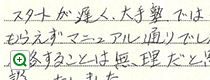 スタートが遅く、大手塾では
もらえずマニュアル通りでし
するごとは無理だと
いました